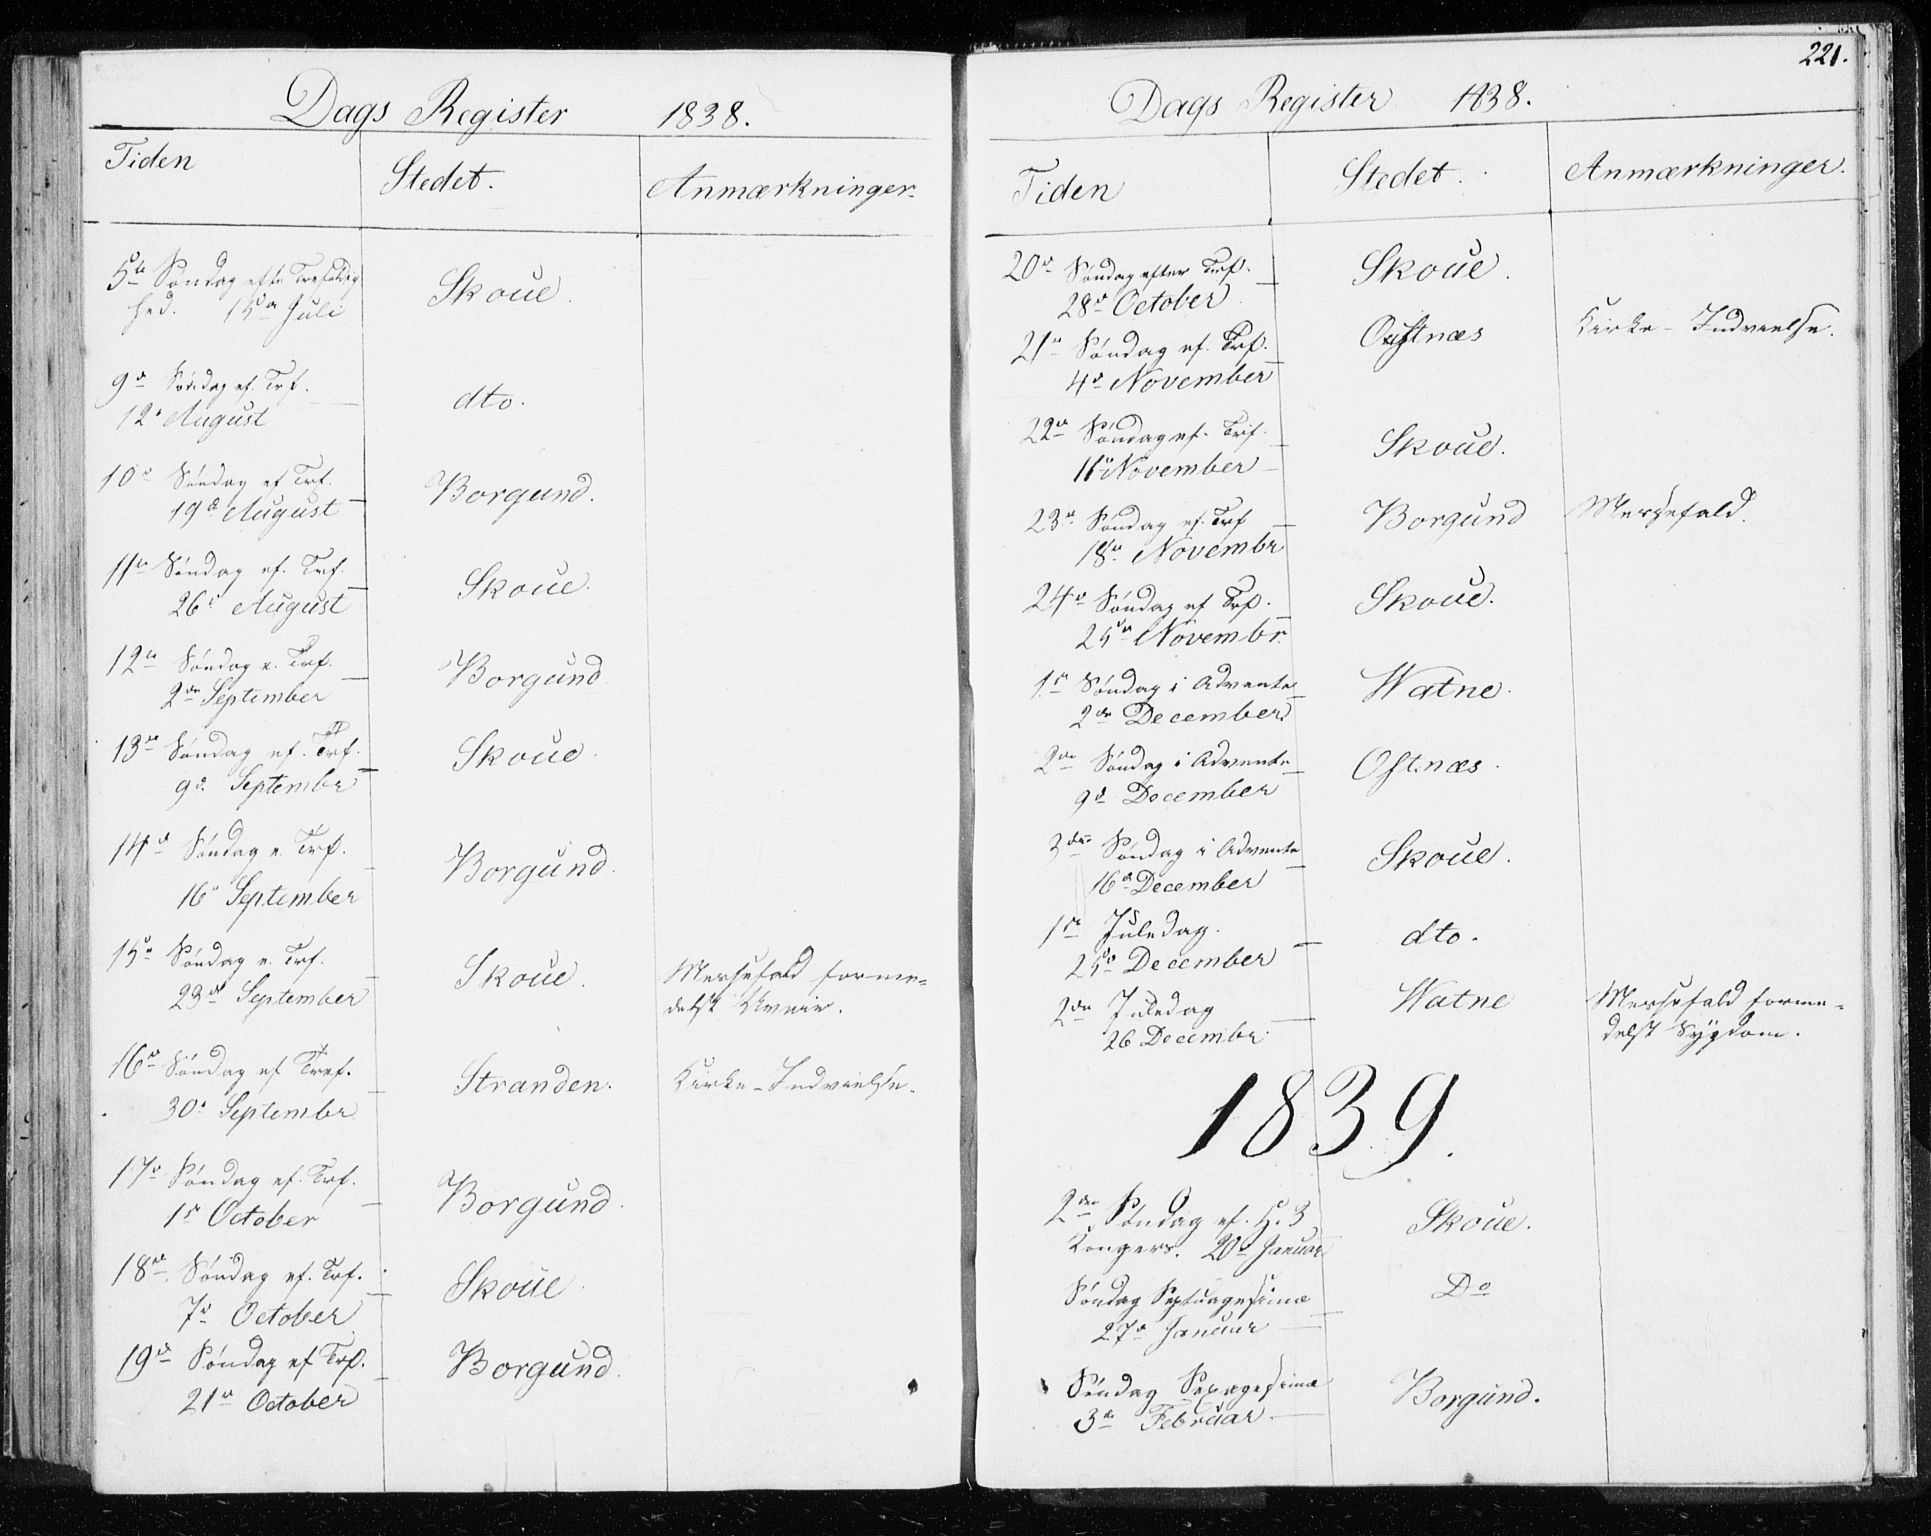 Dags Register 1838.
Tiden Stedet. Anmærkninger.
5te Søndag efter Trefoldig
hed. 15de Juli Skoue.
9de Søndag ef. Trf.
12te August dto.
10de Søndag ef Trf.
19de August Borgund.
11te Søndag ef. Trf.
26de August Skoue.
12te Søndag e. Trf.
2den September Borgund
13de Søndag ef. Trf.
9de Septembr Skoue.
14de Søndag e. Trf.
16de September Borgund.
15de Søndag e. Trf. Skoue. Messefald forme-
23de September delst Uveir.
16de Søndag ef Tref. Stranden. Kirke-Indvielse.
30te Septembr
17de Søndag ef. Trf.
1ste October Borgund.
18de Søndag ef. Trf.
7de October Skoue.
19de Søndag ef Trf.
21de October Borgund.
221.
Dags Register 1838.
Tiden Stedet. Anmærkninger.
20de Søndag efter Trf.
28de October Skoue.
21de Søndag ef. Trf. Ostnæs Kirke-Indvielse.
4de November
22de Søndag ef. Trif.
11te November Skoue.
23de Søndag ef. Trf Borgund Messefald.
18de Novembr
24de Søndag ef Trf.
25de Novembr. Skoue.
1ste Søndag i Advente
2den December Watne.
2den Søndag i Advente
9de December Ostnæs.
3die Søndag i Advente
16de December Skoue.
1ste Juledag.
25de December dto.
2den Juledag Watne Messefald forme-
26 Decembr. delst Sygdom.
1839.
2den Søndag ef. H. 3
Kongers. 20de Januar Skoue.
Søndag Septuagesima
27de Januar Do
Søndag Sexagesima
3die Februar Borgund.